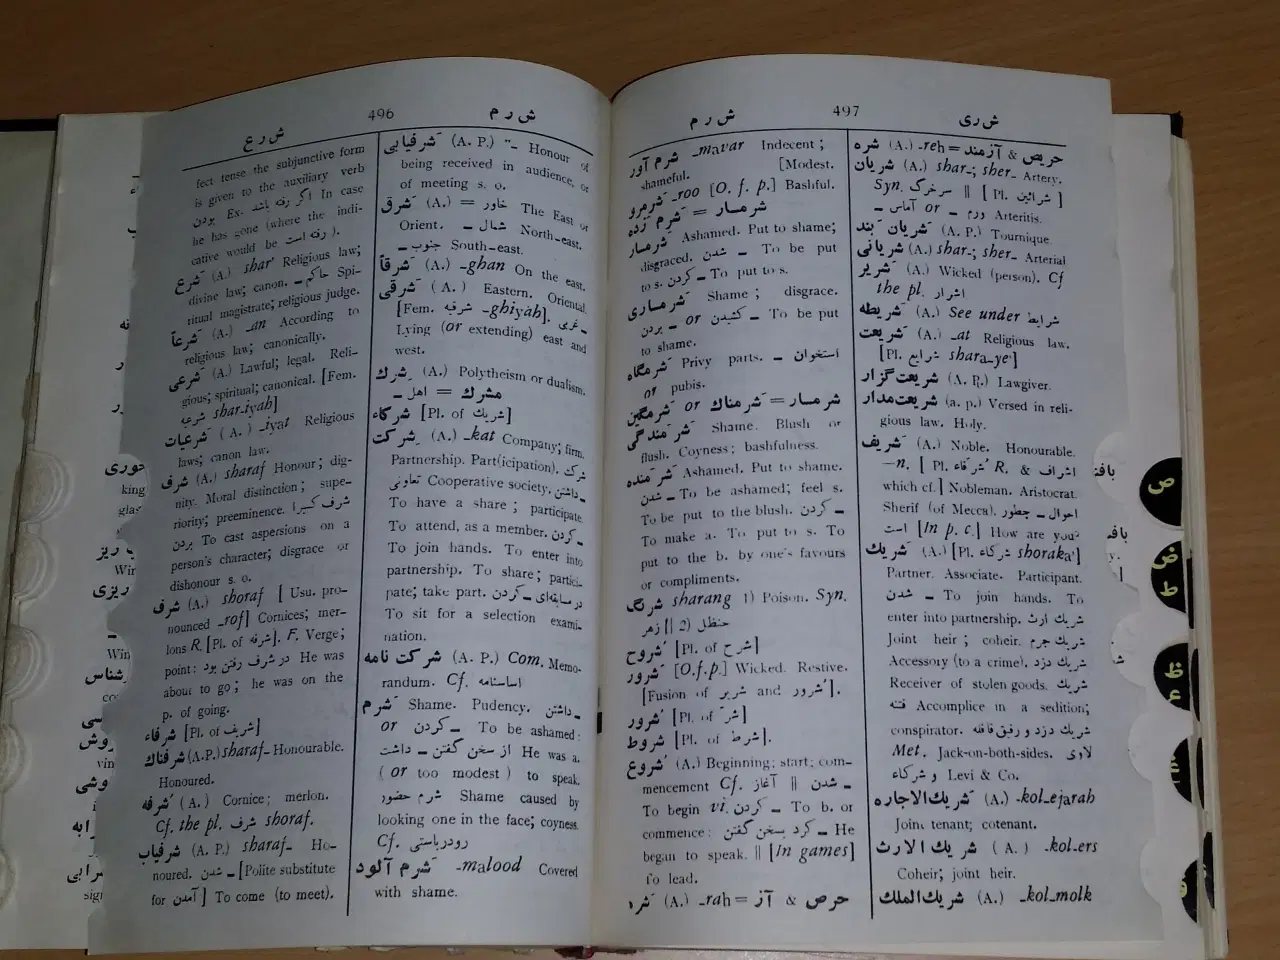 ش ر ع
496
ش ر م
fect tense the subjunctive form
is given to the auxiliary verb
بودن Ex. اگر رفته باشد In case
he has gone (where the indi-
cative would be رفته است ).
شَرع (A.) shar' Religious law;
divine law; canon. حاکم ـ Spi-
ritual magistrate; religious judge.
شَرعاً (A.) -an According to
religious law; canonically.
شَرعی (A.) Lawful; legal. Reli-
gious; spiritual; canonical. [Fem.
شرعیه shar-iyah]
شَرعیات (A.) -iyat Religious
laws; canon law.
شرف (A.) sharaf Honour; dig-
nity. Moral distinction; supe-
riority; preeminence.
بردن To cast aspersions on a
person's character; disgrace or
dishonour s. o.
شرف (A.) shoraf [ Usu. pro-
nounced -rof] Cornices; mer-
lons R. [Pl. of شرفه]. F. Verge;
point: در شرف رفتن بود He was
about to go; he was on the
p. of going.
شرفاء [Pl. of شریف]
شرفناك (A.P.) sharaf- Honourable.
Honoured.
شُرفه (A.) Cornice; merlon.
Cf. the pl. شرف shoraf.
شرفیاب (A. P.) sharaf- Ho-
noured. شدن ـ [Polite substitute
for آمدن ] To come (to meet).
شَرفیابی (A. P.) "- Honour of
being received in audience, or
of meeting s. o.
شَرق (A.) = خاور The East or
Orient. شمال ـ North-east.
جنوب ـ South-east.
شَرقاً (A.) -ghan On the east.
شَرقی (A.) Eastern. Oriental
[Fem. شرقیه -ghiyah]. غربی ـ
Lying (or extending) east and
west.
شِرك (A.) Polytheism or dualism.
اهل ـ = مشرك
شركاء [Pl. of شریك]
شِركت (A.) -kat Company; firm.
Partnership. Part(icipation). شرکت
تعاونی Cooperative society. داشتن ـ
To have a share; participate.
To attend, as a member. کردن ـ
To join hands. To enter into
partnership. To share; partici-
pate; take part. در مسابقه‌ای ـ کردن
To sit for a selection exami-
nation.
شركت نامه (A. P.) Com. Memo-
randum. Cf. اساسنامه
شَرم Shame. Pudency. داشتن ـ
or کردن ـ To be ashamed:
از سخن گفتن ـ داشت He was a.
( or too modest ) to speak.
شرم حضور Shame caused by
looking one in the face; coyness
Cf. رودرباستی
شَرم آلود -malood Covered
with shame.
ش ر م
497
ش ر ی
شرم آور -mavar Indecent;
shameful. [Modest.
شَرمرو -roo [O. f. p.] Bashful.
شَرم زده = شرمسار
شرمسار Ashamed. Put to shame;
disgraced. شدن ـ To be put
to s. کردن ـ To put to s.
شَرمساری Shame; disgrace.
بردن ـ or کشیدن ـ To be put
to shame.
شَرمگاه Privy parts. استخوان ـ
or pubis.
شَرمگین or شرمناك = شرمسار
شَرمندگی Shame. Blush or
flush. Coyness; bashfulness.
شَرمنده Ashamed. Put to shame.
شدن ـ To be ashamed; feel s.
To be put to the blush. کردن ـ
To make a. To put to s. To
put to the b. by one's favours
or compliments.
شرنگ sharang 1) Poison. Syn.
زهر || 2) حنظل
شروح [Pl. of شرح]
شَرور [O.f.p.] Wicked. Restive.
[Fusion of شریر and شُرور].
شُرور [Pl. of شرّ]
شروط [Pl. of شرط].
شُروع (A.) Beginning; start; com-
mencement Cf. آغاز || شدن ـ
To begin vi. کردن ـ To b. or
commence: کرد بسخن گفتن ـ He
began to speak. || [In games]
To lead.
شَره (A.) -rah = آز & حرص
شره (A.) -reh = آزمند & حریص
شریان (A.) shar-; sher- Artery.
Syn. سرخرگ || [ Pl. شرائین ]
آماس ـ or ورم ـ Arteritis.
شَریان بَند (A. P.) Tournique.
شَریانی (A.) shar-; sher- Arterial
شَریر (A.) Wicked (person). Cf
the pl. اشرار
شَریطه (A.) See under شرایط
شَریعت (A.) -at Religious law.
[Pl. شرایع shara-ye']
شریعت گزار (A. P.) Lawgiver.
شریعت‌مدار (a. p.) Versed in reli-
gious law. Holy.
شَریف (A.) Noble. Honourable.
—n. [ Pl. شُرفاء R. & اشراف
which cf.] Nobleman. Aristocrat.
Sherif (of Mecca). احوال ـ چطور
است [In p. c.] How are you?
شَریك (A.) [Pl. شرکاء shoraka']
Partner. Associate. Participant.
شدن ـ To join hands. To
enter into partnership. شریك ارث
Joint heir; coheir. شریك جرم
Accessory (to a crime). شریك دزد
Receiver of stolen goods. شریك
فتنه Accomplice in a sedition;
conspirator. شریك دزد و رفیق قافله
Met. Jack-on-both-sides. لاوی
و شرکاء Levi & Co.
شَریك الاجاره (A.) -kol-ejarah
Joint tenant; cotenant.
شریك الارث (A.) -kol-ers
Coheir; joint heir.
شریك‌الملك (A.) -kol-molk
ص
ض
ط